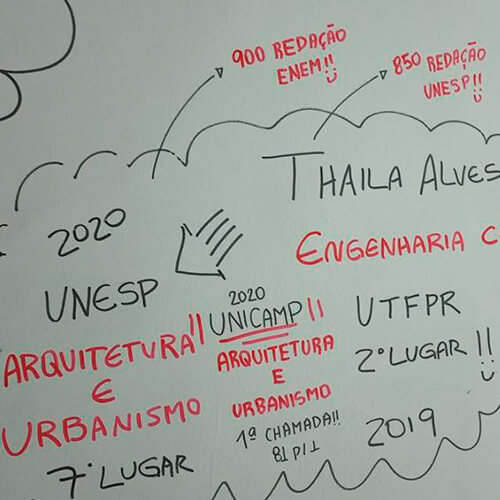 900 REDAÇÃO
ENEM!!
850 REDAÇÃO
UNESP!!
THAILA ALVES
2020
UNESP
ARQUITETURA
E
URBANISMO
7º LUGAR
2020
!! UNICAMP !!
ARQUITETURA
E
URBANISMO
1ª CHAMADA!!
ENGENHARIA C
UTFPR
2º LUGAR !!
2019